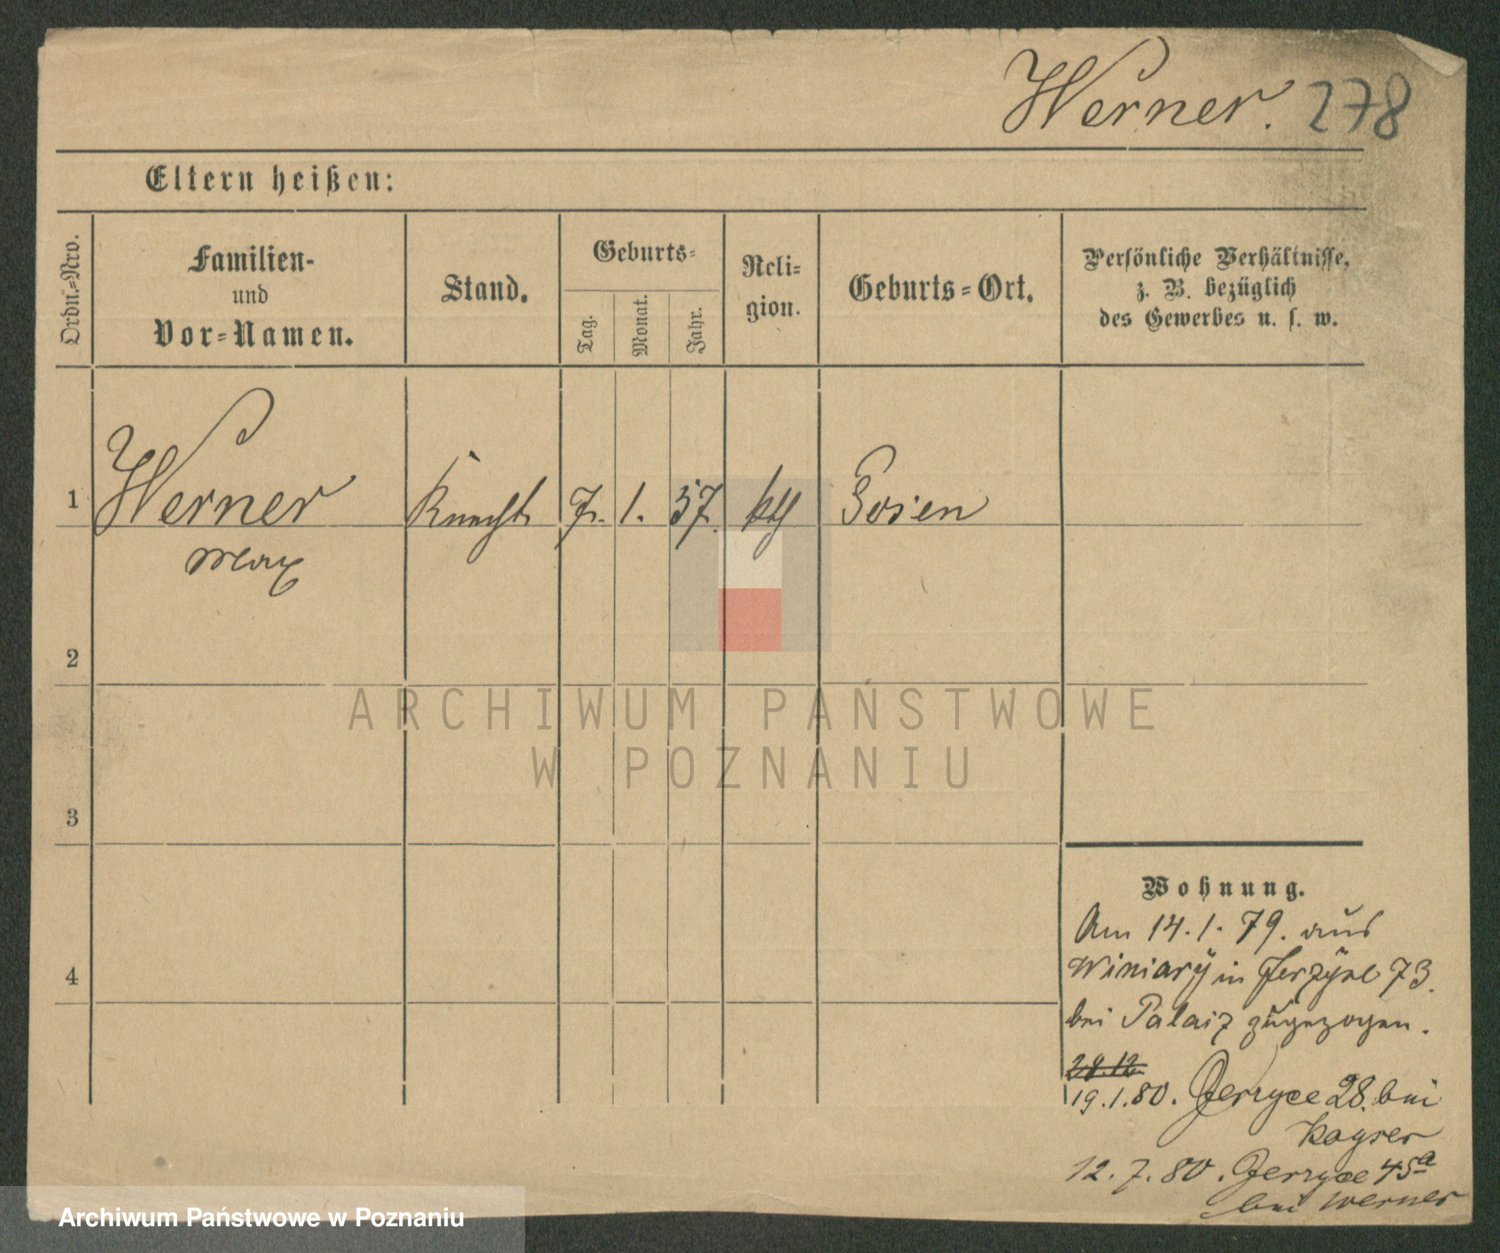 Werner. 278
Eltern heißen:
Ordn.-Nro.
Familien-
und
Vor-Namen.
Stand.
Geburts-
Tag.
Monat.
Jahr.
Reli-
gion.
Geburts-Ort.
Persönliche Verhältnisse,
z. B. bezüglich
des Gewerbes u. s. w.
1 Werner Knecht 7. 1. 57. kth Posen
Max
2
ARCHIWUM PAŃSTWOWE
W POZNANIU
3
Wohnung.
Am 14. 1. 79. aus
Winiary in 73.
bei zugezogen.
4
28.12
19. 1. 80. Jerzyce 28. bei
Kayser
12. 7. 80. Jerzyce 45a
bei Werner
Archiwum Państwowe w Poznaniu